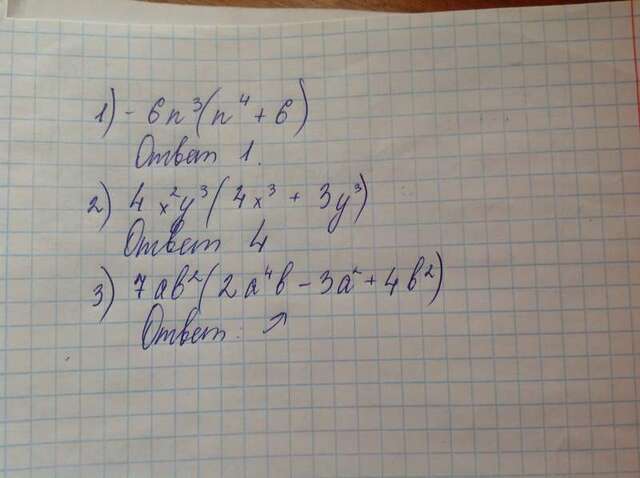 1) - 6n³(n⁴ + 6)
Ответ 1.
2) 4x²y³(4x³ + 3y³)
Ответ 4
3) 7ab²(2a⁴b - 3a² + 4b²)
Ответ: ↗